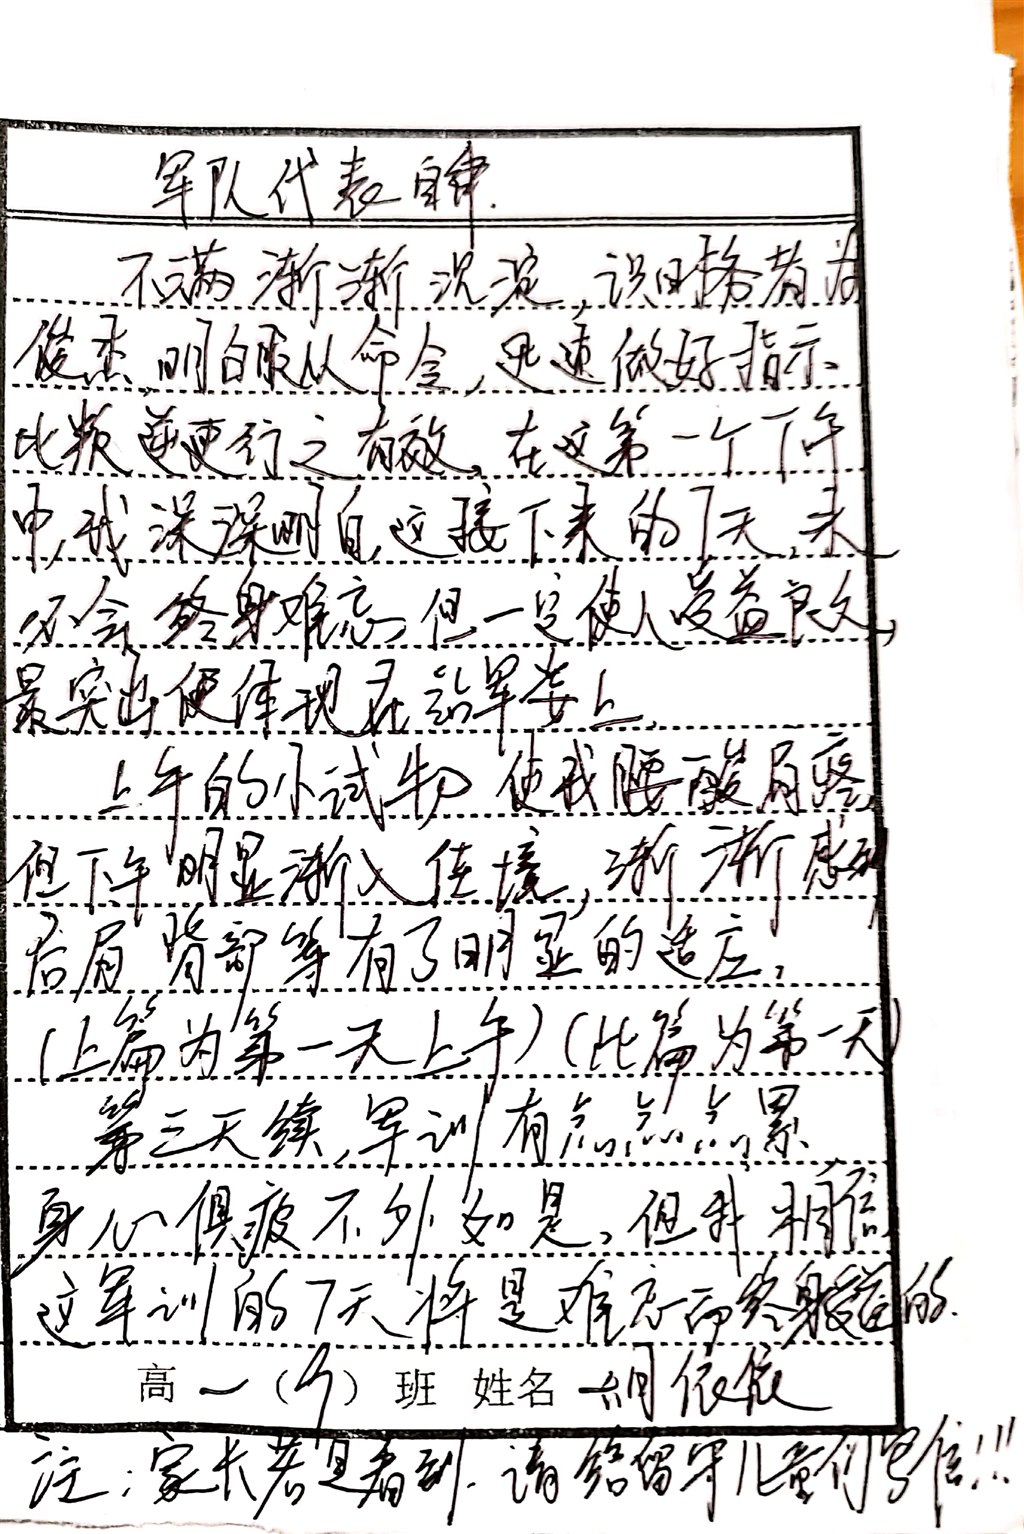 军队代表自律.
不满渐渐沉淀,识时务者为
俊杰,明白服从命令,迅速做好指示
比叛逆更行之有效。在这第一个下午
中,我深深明白,这接下来的7天,未
必会终身难忘,但一定使人受益良久,
最突出便体现在站军姿上.
上午的小试牛刀 使我腰酸肩疼,
但下午明显渐入佳境,渐渐感到
后肩背部等有了明显的适应,
(上篇为第一天上午)(此篇为第一天)
第三天续,军训有点点点累
身心俱疲不外如是,但我相信
这军训的7天将是难忘而终身受益的.
高一()班 姓名 胡依依
注:家长若是看到.请给留守儿童们写信!!!